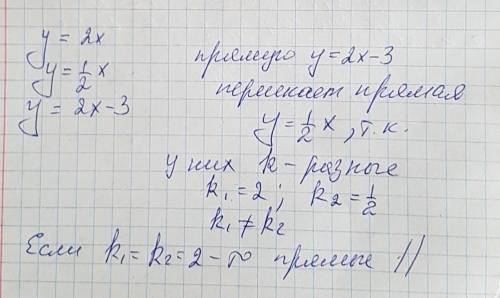 y = 2x
y = 1/2 x
y = 2x-3
прямую y = 2x-3
пересекает прямая
y = 1/2 x, т.к.
у них k - разные
k₁ = 2; k₂ = 1/2
k₁ ≠ k₂
Если k₁ = k₂ = 2 - то прямые //